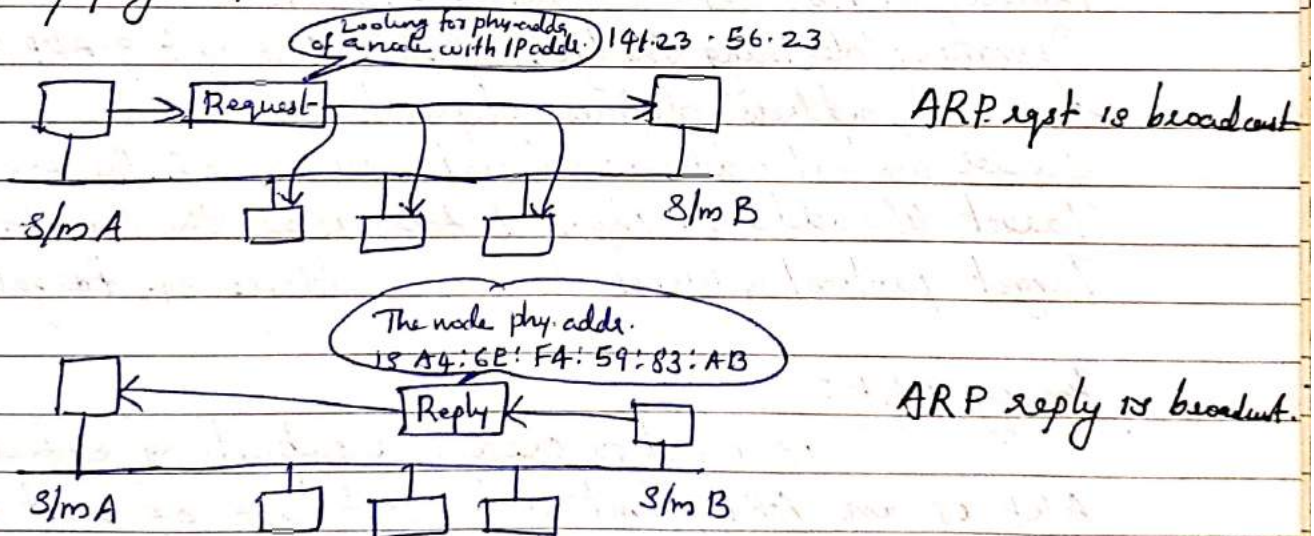 Looking for phy. adds.
of a node with IP adds. 141.23.56.23
Request
ARP rqst is broadcast
S/m A
S/m B
The node phy. adds.
is A4:6E:F4:59:83:AB
Reply
ARP reply is broadcast.
S/m A
S/m B